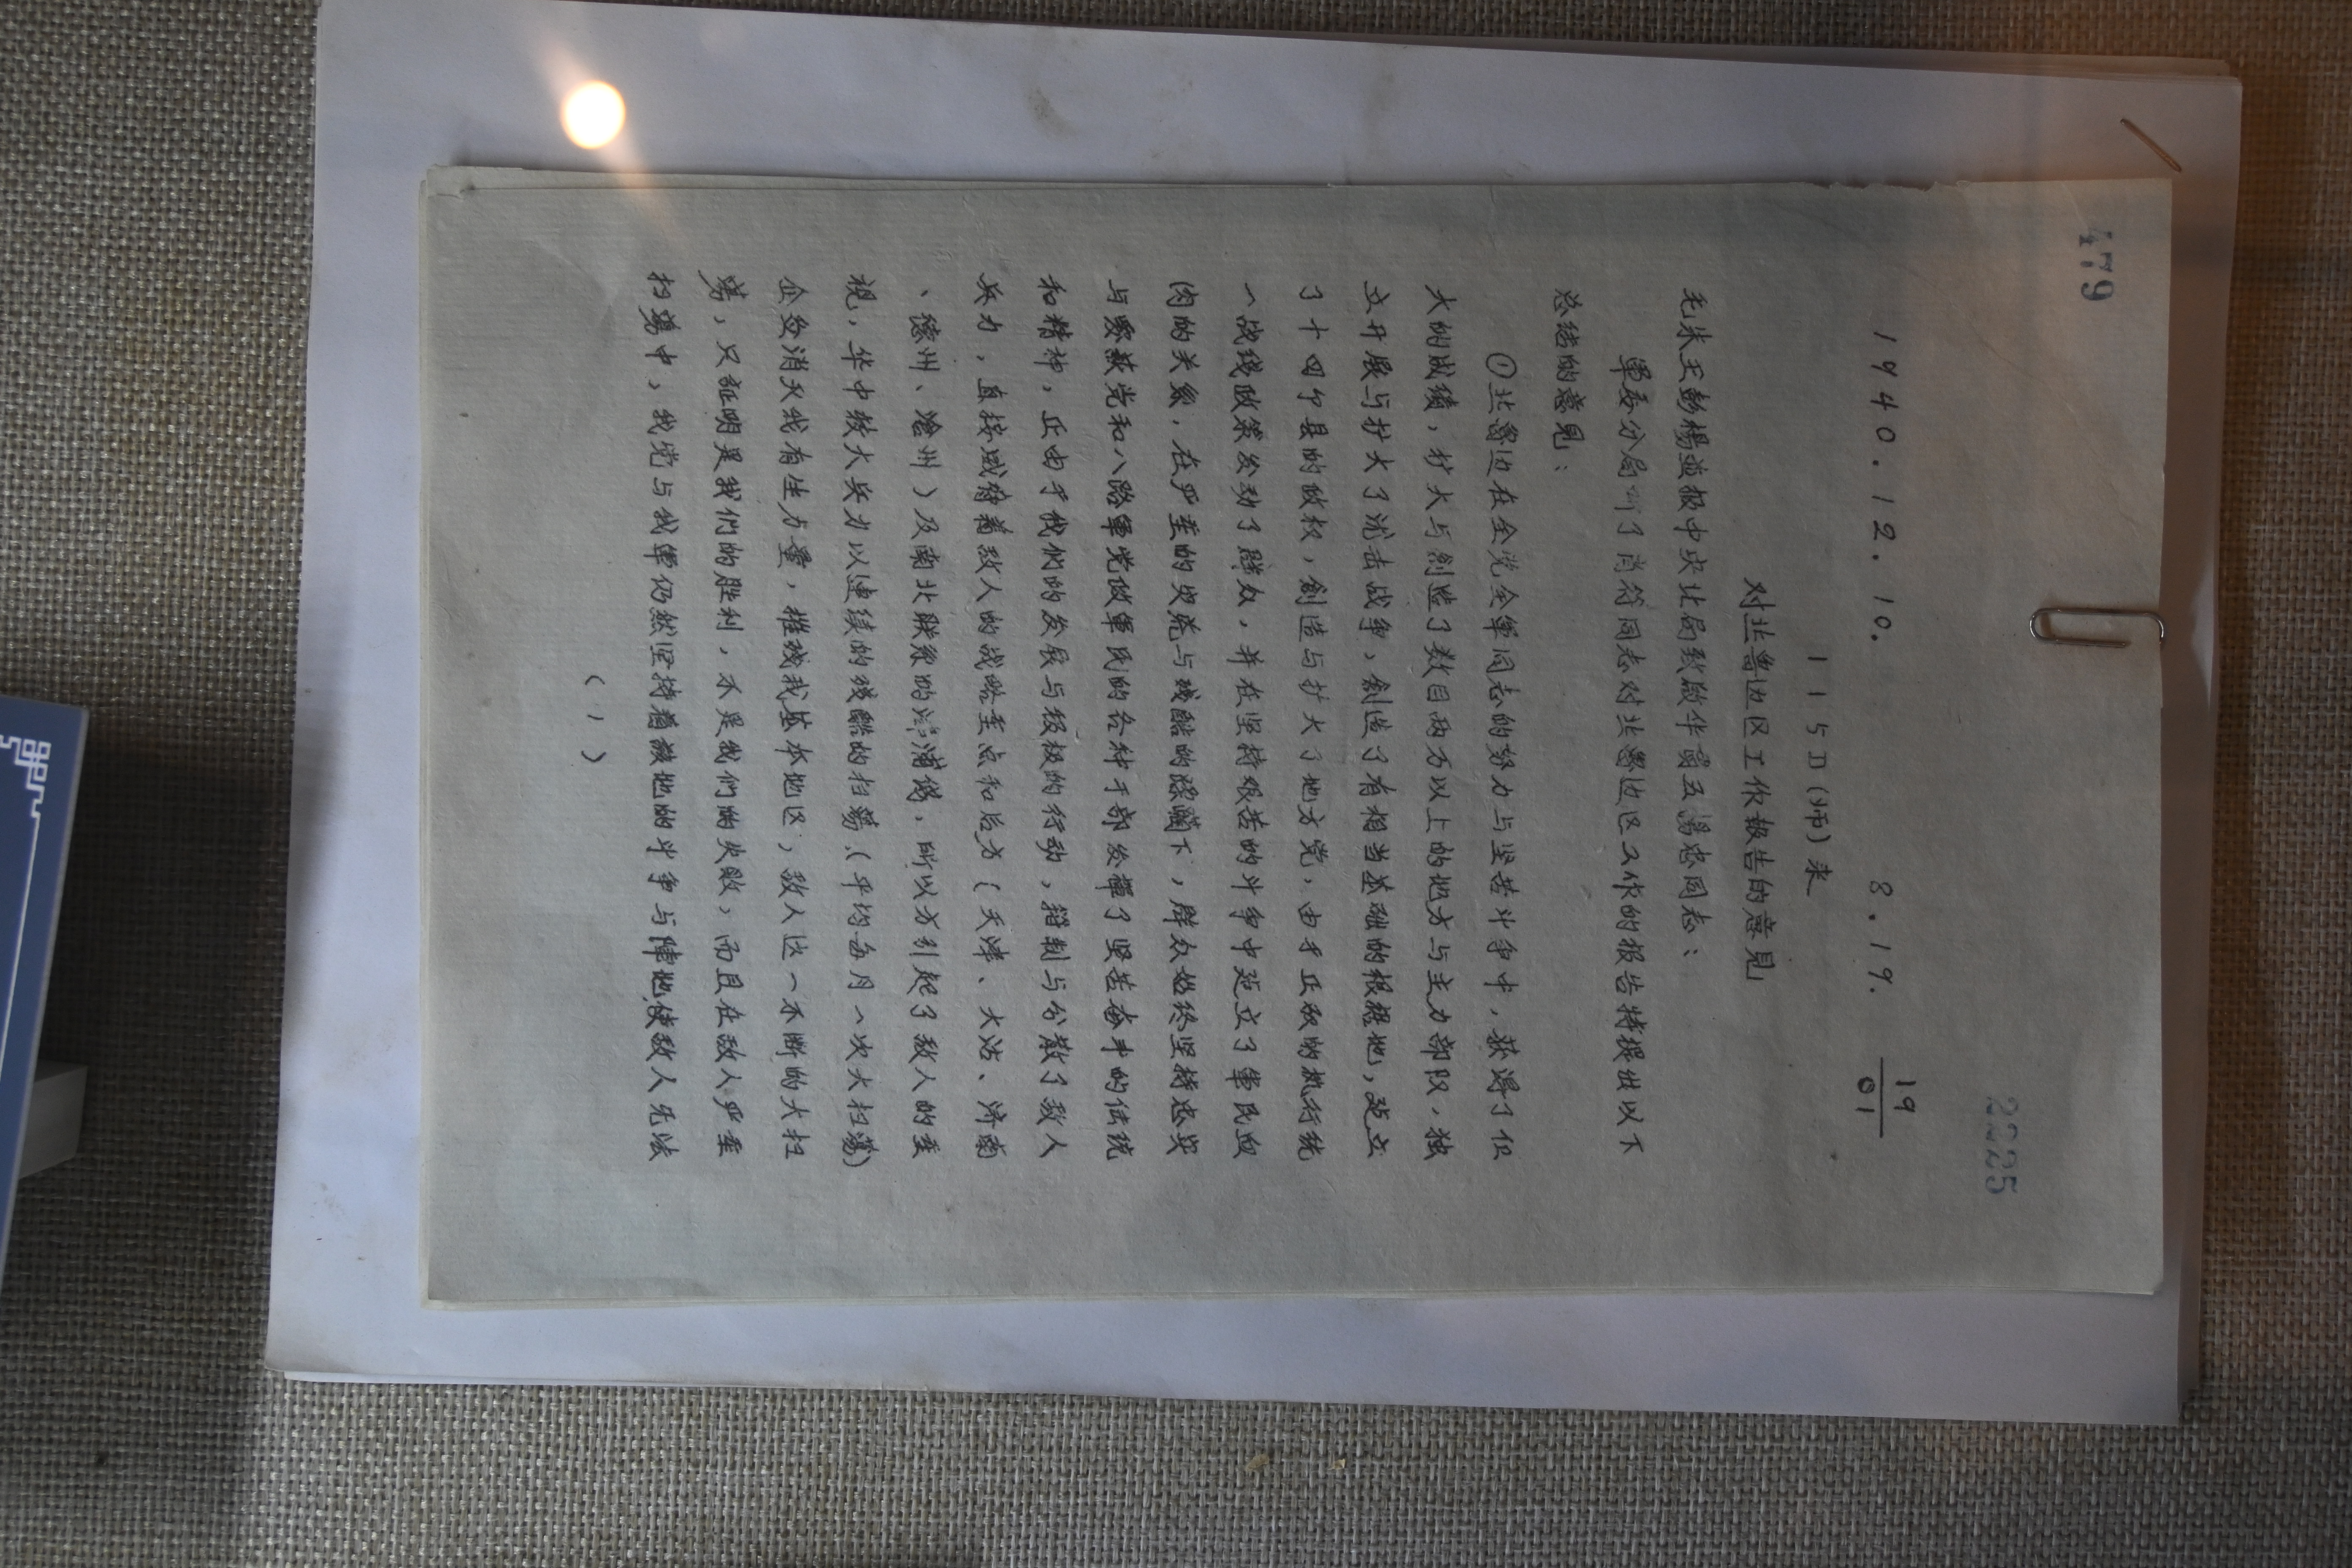 479
22225
1940.12.10. 8.19. 19/01
115D(师)来
对北鲁边区工作報告的意見
毛朱王彭楊並报中央北局致啟华霄五湯忠同志：
軍委分局听了肖符同志对北鲁边区工作的报告特提出以下
总结的意見：
①北鲁边在全党全軍同志的努力与坚苦斗争中，获得了伹
大的成績，扩大与創造了数目两万以上的地方与主力部队，独
立开展与扩大了游击战争，創造了有相当基础的根据地，建立
了十四个县的政权，創造与扩大了地方党，由于正确的执行统
一战线政策发动了群众，并在坚持艰苦的斗争中建立了軍民血
肉的关系，在严重的灾荒与残酷的蹂躪下，群众始终坚持忠实
与爱戴党和八路軍党政軍民的各种干部发揮了坚苦奋斗的传统
和精神，正由于我們的发展与积极的行动，箝制与分散了敌人
兵力，直接威脅着敌人的战略重点和后方（天津、大沽、济南
、德州、滄州）及南北联系的 浦线，所以方引起了敌人的重
視，华中较大兵力以連续的残酷的扫蕩，（平均每月一次大扫蕩）
企图消灭我有生力量，摧残我基本地区，敌人这一不断的大扫
蕩，只証明是我们的胜利，不是我们的失敗，而且在敌人严重
扫蕩中，我党与我軍仍然坚持着該地的斗争与陣地使敌人无法
（1）